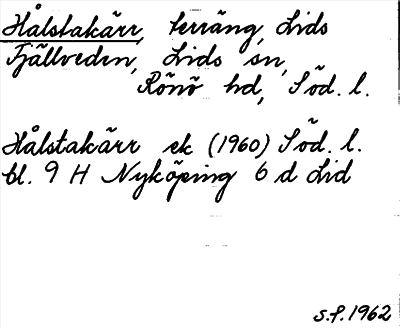 Hålstakärr, terräng, Lids
Fjällveden, Lids sn,
Rönö hd, Söd. l.
Hålstakärr ek (1960) Söd. l.
bl. 9 H Nyköping 6 d Lid
S.F. 1962